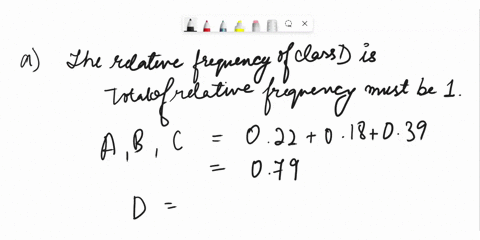 a) The relative frequency of class D is
Total of relative frequency must be 1.
A, B, C = 0.22 + 0.18 + 0.39
= 0.79
D =